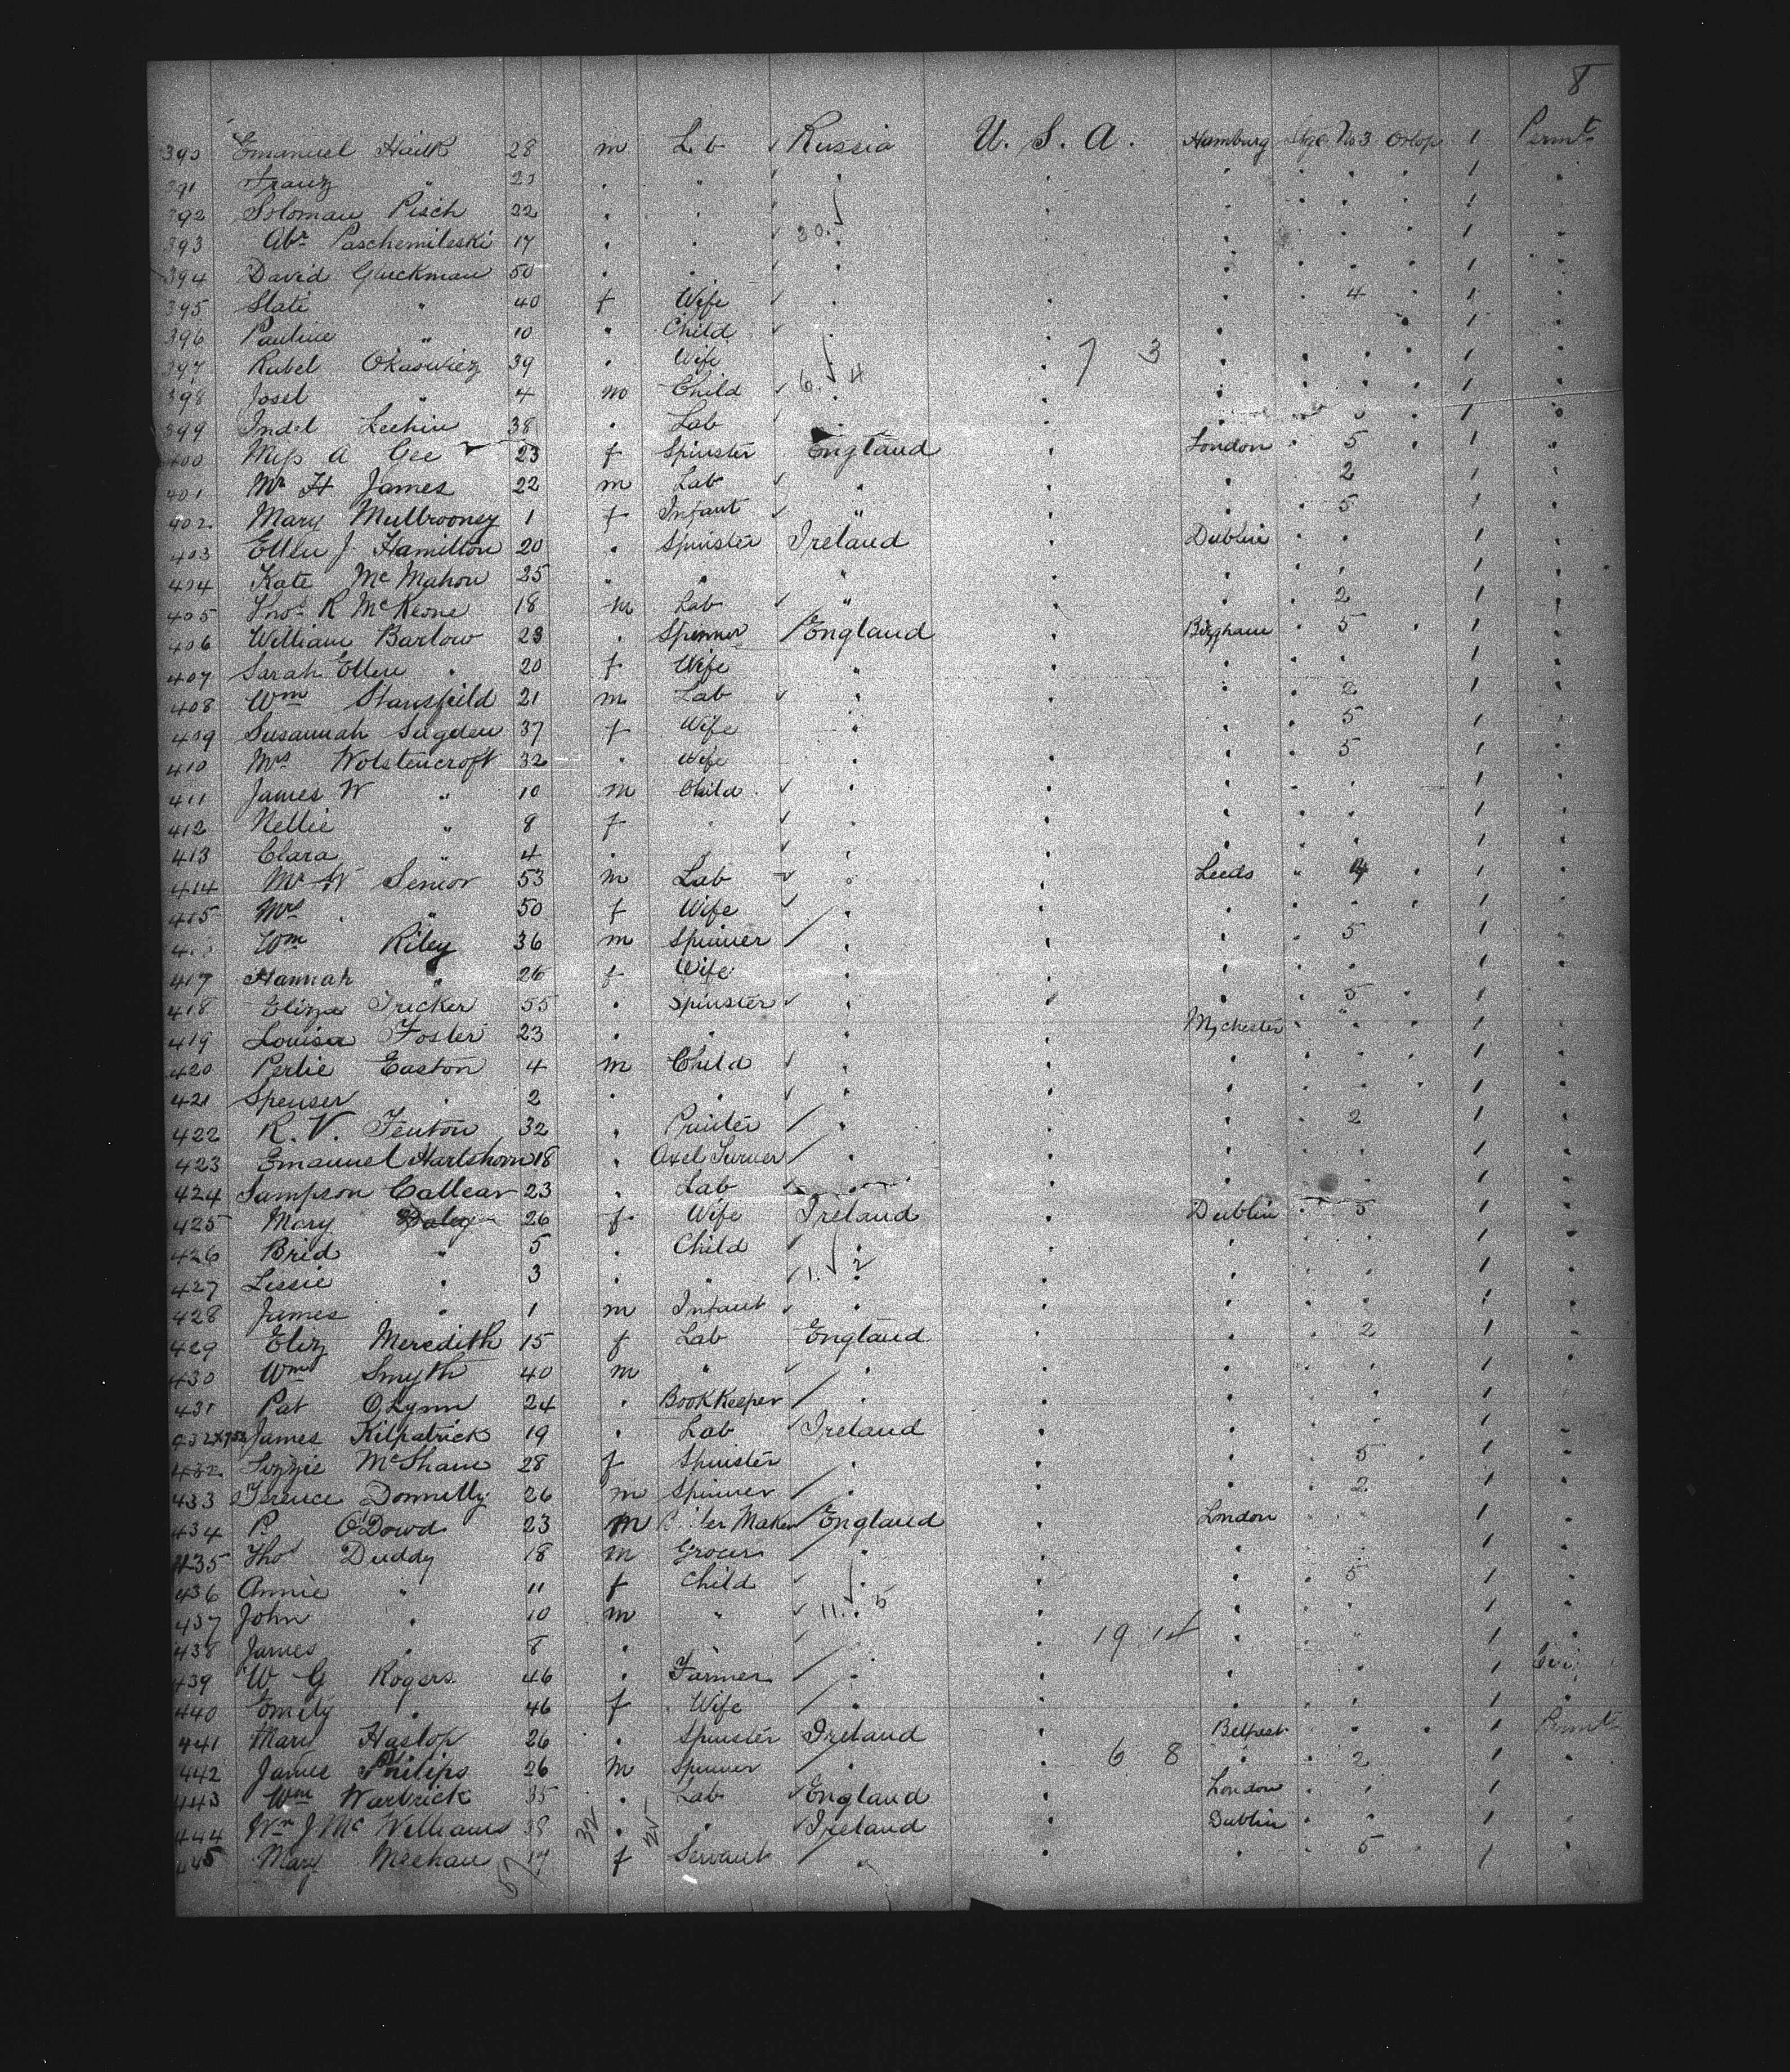 8
390 Emanuel Haik 28 m Lab Russia U. S. A. Hamburg Stge No 3 Orlop 1 Permt
391 Franz " 23 . " . . . . . . 1 .
392 Soloman Pisch 22 . . . . . . . . 1 .
393 Abr Paschemileski 17 . . 30. . . . . . 1 .
394 David Gluckman 50 . . . . . . . . 1 .
395 Slati " 40 f Wife . . . . 4 . 1 .
396 Pauline " 10 " Child . . . . 1 .
397 Rubel Okaswiez 39 . Wife . 7 3 . . . . 1 .
398 Josel " 4 m Child 6. 4 . . . . . 1 .
399 Indel Lechin 38 . Lab . . . . . . 1 .
400 Miss A Gee 23 f Spinster England . London . 5 . 1 .
401 Mr H James 22 m Lab " . . . 2 1 .
402 Mary Mulbrooney 1 f Infant " . . . 5 1 .
403 Ellen J. Hamilton 20 . Spinster Ireland . Dublin . . 1 .
404 Kate McMahon 25 " " " . . . . 1 .
405 Jno. R McKeone 18 m Lab " . . . 2 1 .
406 William Barlow 23 . Spinner England . Birgham . 5 . 1 .
407 Sarah Ellen . 20 f Wife " . . . . 1 .
408 Wm Stansfeild 21 m Lab . . . . 2 1 .
409 Susannah Sugden 37 f Wife . . . . 5 1 .
410 Mrs Wolstencroft 32 . Wife . . . . 5 1 .
411 James W " 10 m Child . . . . . 1 .
412 Nellie " 8 f . . . . . . 1 .
413 Clara " 4 . . . . . . . 1 .
414 Mr W Senior 53 m Lab . . Leeds " 4 . 1 .
415 Mrs . " 50 f Wife . . . . . . 1 .
Wm Riley 36 m Spinner . . . . 5 1 .
417 Hannah " 26 f Wife . . . . . 1 .
418 Eliza Tricker 55 . Spinster . . . . 5 . 1 .
419 Louisa Foster 23 . . . . Mchester . " . 1 .
420 Perlie Easton 4 m Child . . . . . . 1 .
421 Spenser . 2 . . . . . . . . 1 .
422 R. V. Fenton 32 . Printer . . . . 2 1 .
423 Emanuel Hartshorn 18 . Axel Turner . . . . . 1 .
424 Sampson Callear 23 . Lab . . . . 1 .
425 Mary Daley 26 f Wife Ireland . Dublin . 5 1 .
426 Brid " 5 . Child . . . . . 1 .
427 Lissie . 3 . " 1. 2 . . . . 1 .
428 James . 1 m Infant . . . . . 1 .
429 Eliz Meredith 15 f Lab England . . . 2 1 .
430 Wm Smyth 40 m " . . . . . 1 .
431 Pat OLynn 24 . BookKeeper . . . . . 1 .
432 James Kilpatrick 19 . Lab Ireland . . . . 1 .
432 Lizzie McShane 28 f Spinster . . . . 5 . 1 .
433 Terence Donnelly 26 m Spinner . . . . 2 1 .
434 P. O'Dowd 23 m Maker England . London . . 1 .
435 Thos Duddy 18 m Grocer . . . . . 1 .
436 Annie " 11 f Child . . . . 5 1 .
437 John . 10 m " 11. 5 . . . . 1 .
438 James . 8 . . 19 14 . . " 1 .
439 W G Rogers 46 . Farmer . . . . . 1
440 Emily . 46 f Wife . . . . . 1 .
441 Mary Haslop 26 . Spinster Ireland . Belfast . . . 1 Permt
442 James Philips 26 m Spinner . . 6 8 . . 2 1 .
443 Wm Warbrick 35 . Lab England . London . . 1
444 Wm J Mc Williams 38 . . Ireland . Dublin . . 1 .
445 Mary Meehan 17 f Servant . . . . 5 1 .